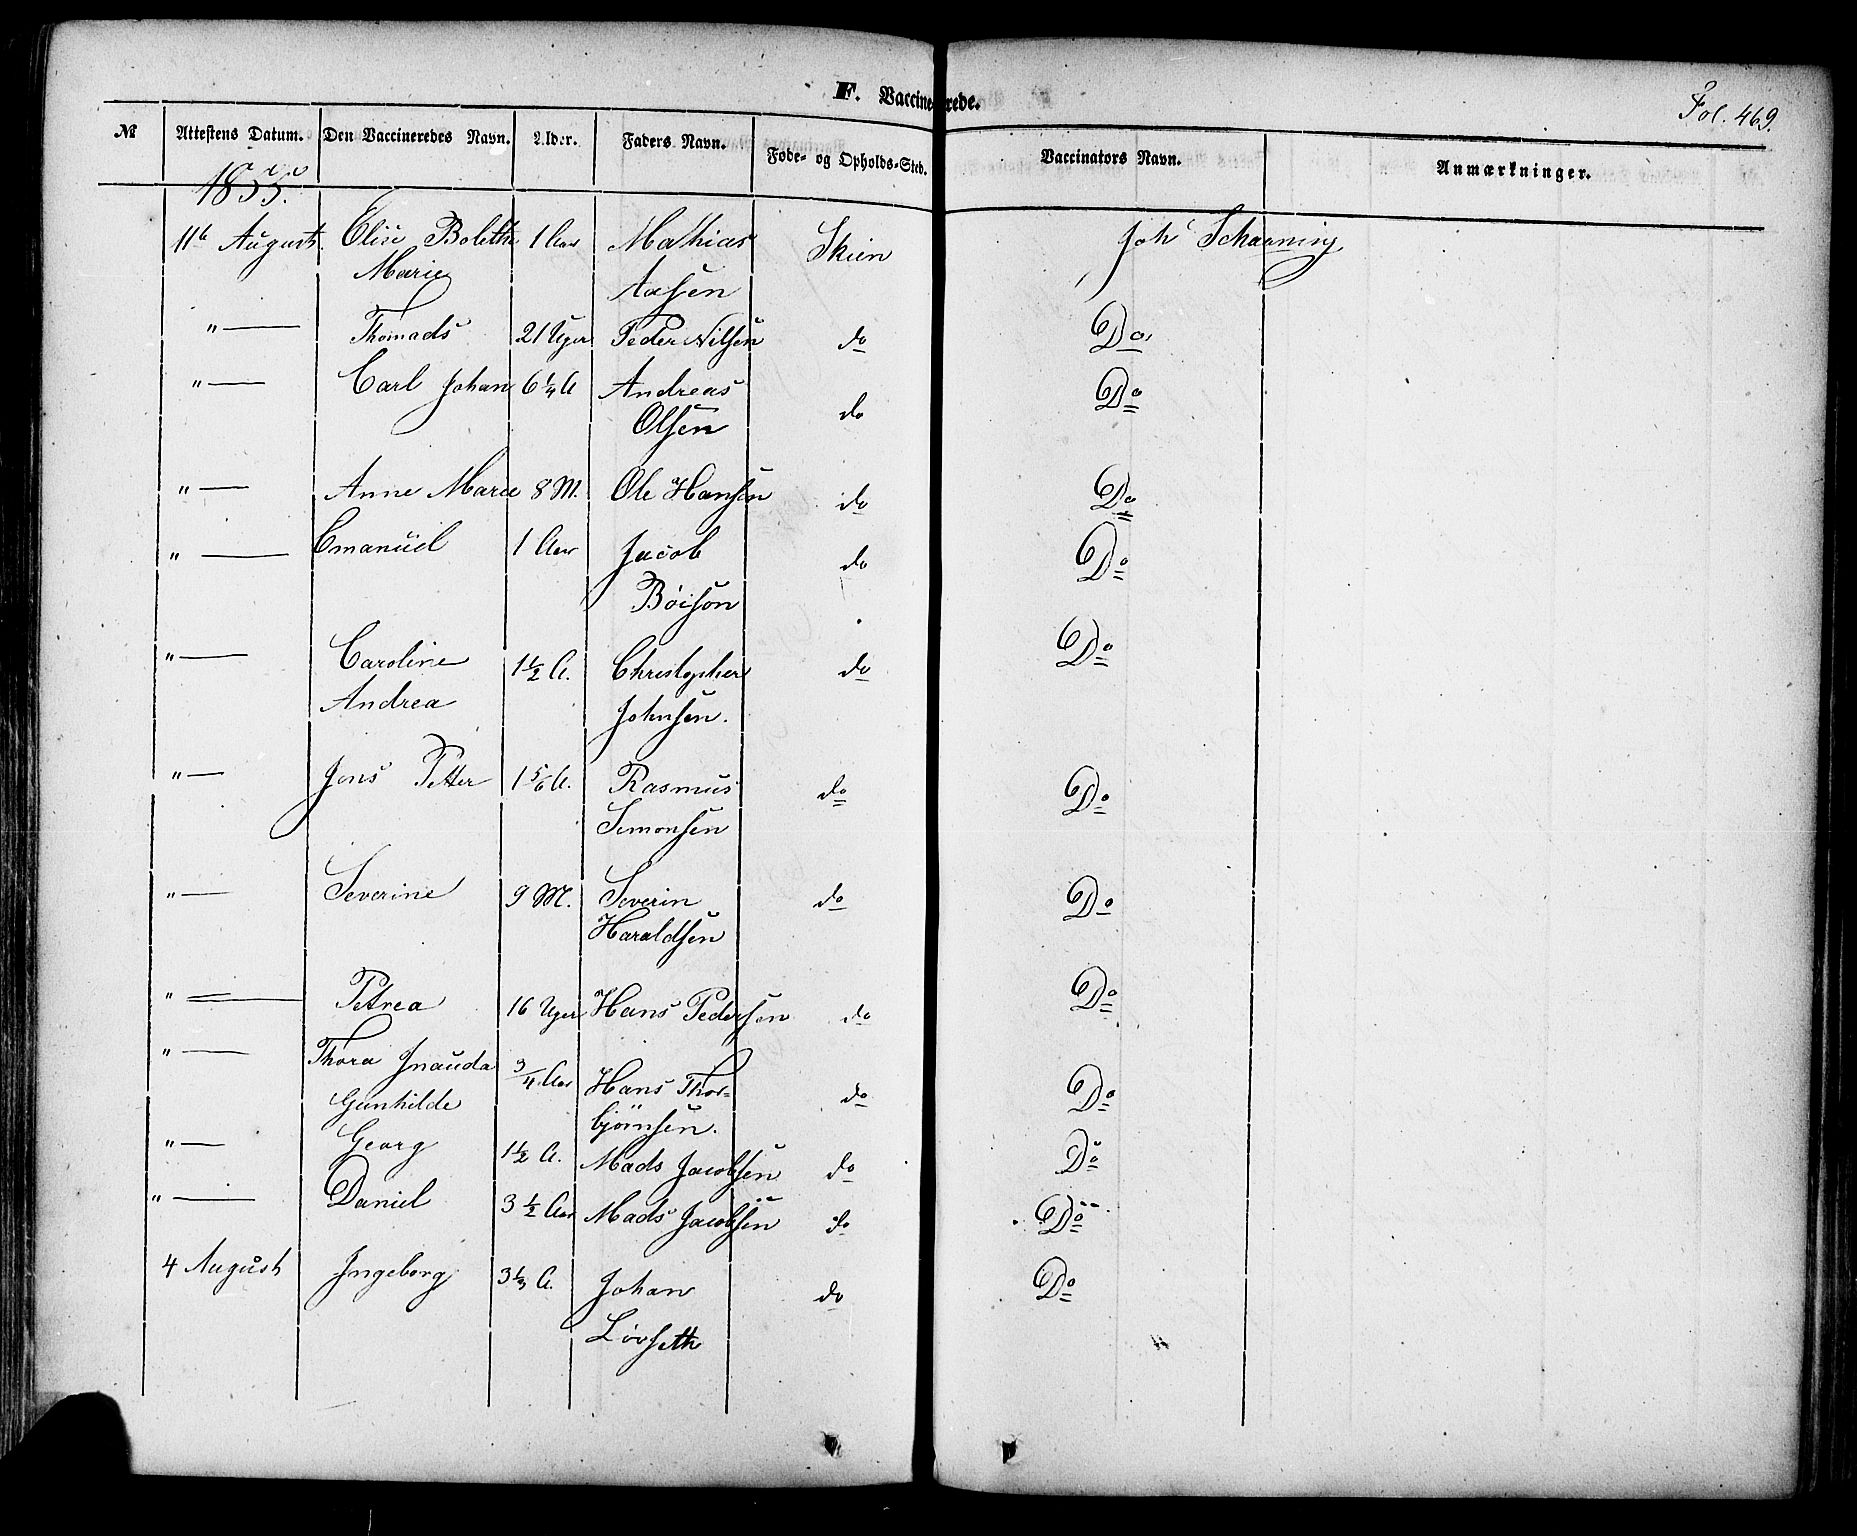 F. Vaccinerede.
Fol. 469.
№ Attestens Datum. Den Vaccineredes Navn. Alder. Faders Navn. Føde- og Opholds-Sted. Vaccinators Navn. Anmærkninger.
1855.
11te August. Elise Bolethe 1 Aar Mathias Skien Joh Schaanning
Marie Aasen
" — Thomads 21 Uger Peder Nilsen do Do
" — Carl Johan 6 1/4 A Andreas do Do
Olsen
" — Anne Marie 8 M. Ole Hansen do Do
" — Emanuel 1 Aar Jacob do Do
Böison
" — Caroline 1 1/2 A. Christopher do Do
Andrea Johnsen.
" — Jens Petter 1 5/6 A. Rasmus do Do
Simonsen
" — Severine 9 M. Severin do Do
Haraldsen
" — Petrea 16 Uger Hans Pedersen do Do
" — Thora 3/4 Aar Hans Thor- do Do
Gunhilde björnsen.
" — Georg 1 1/2 A. Mads Jacobsen do Do
" — Daniel 3 1/2 Aar Mads Jacobsen do Do
4 August Ingeborg 3 1/3 A. Johan do Do
Lövseth